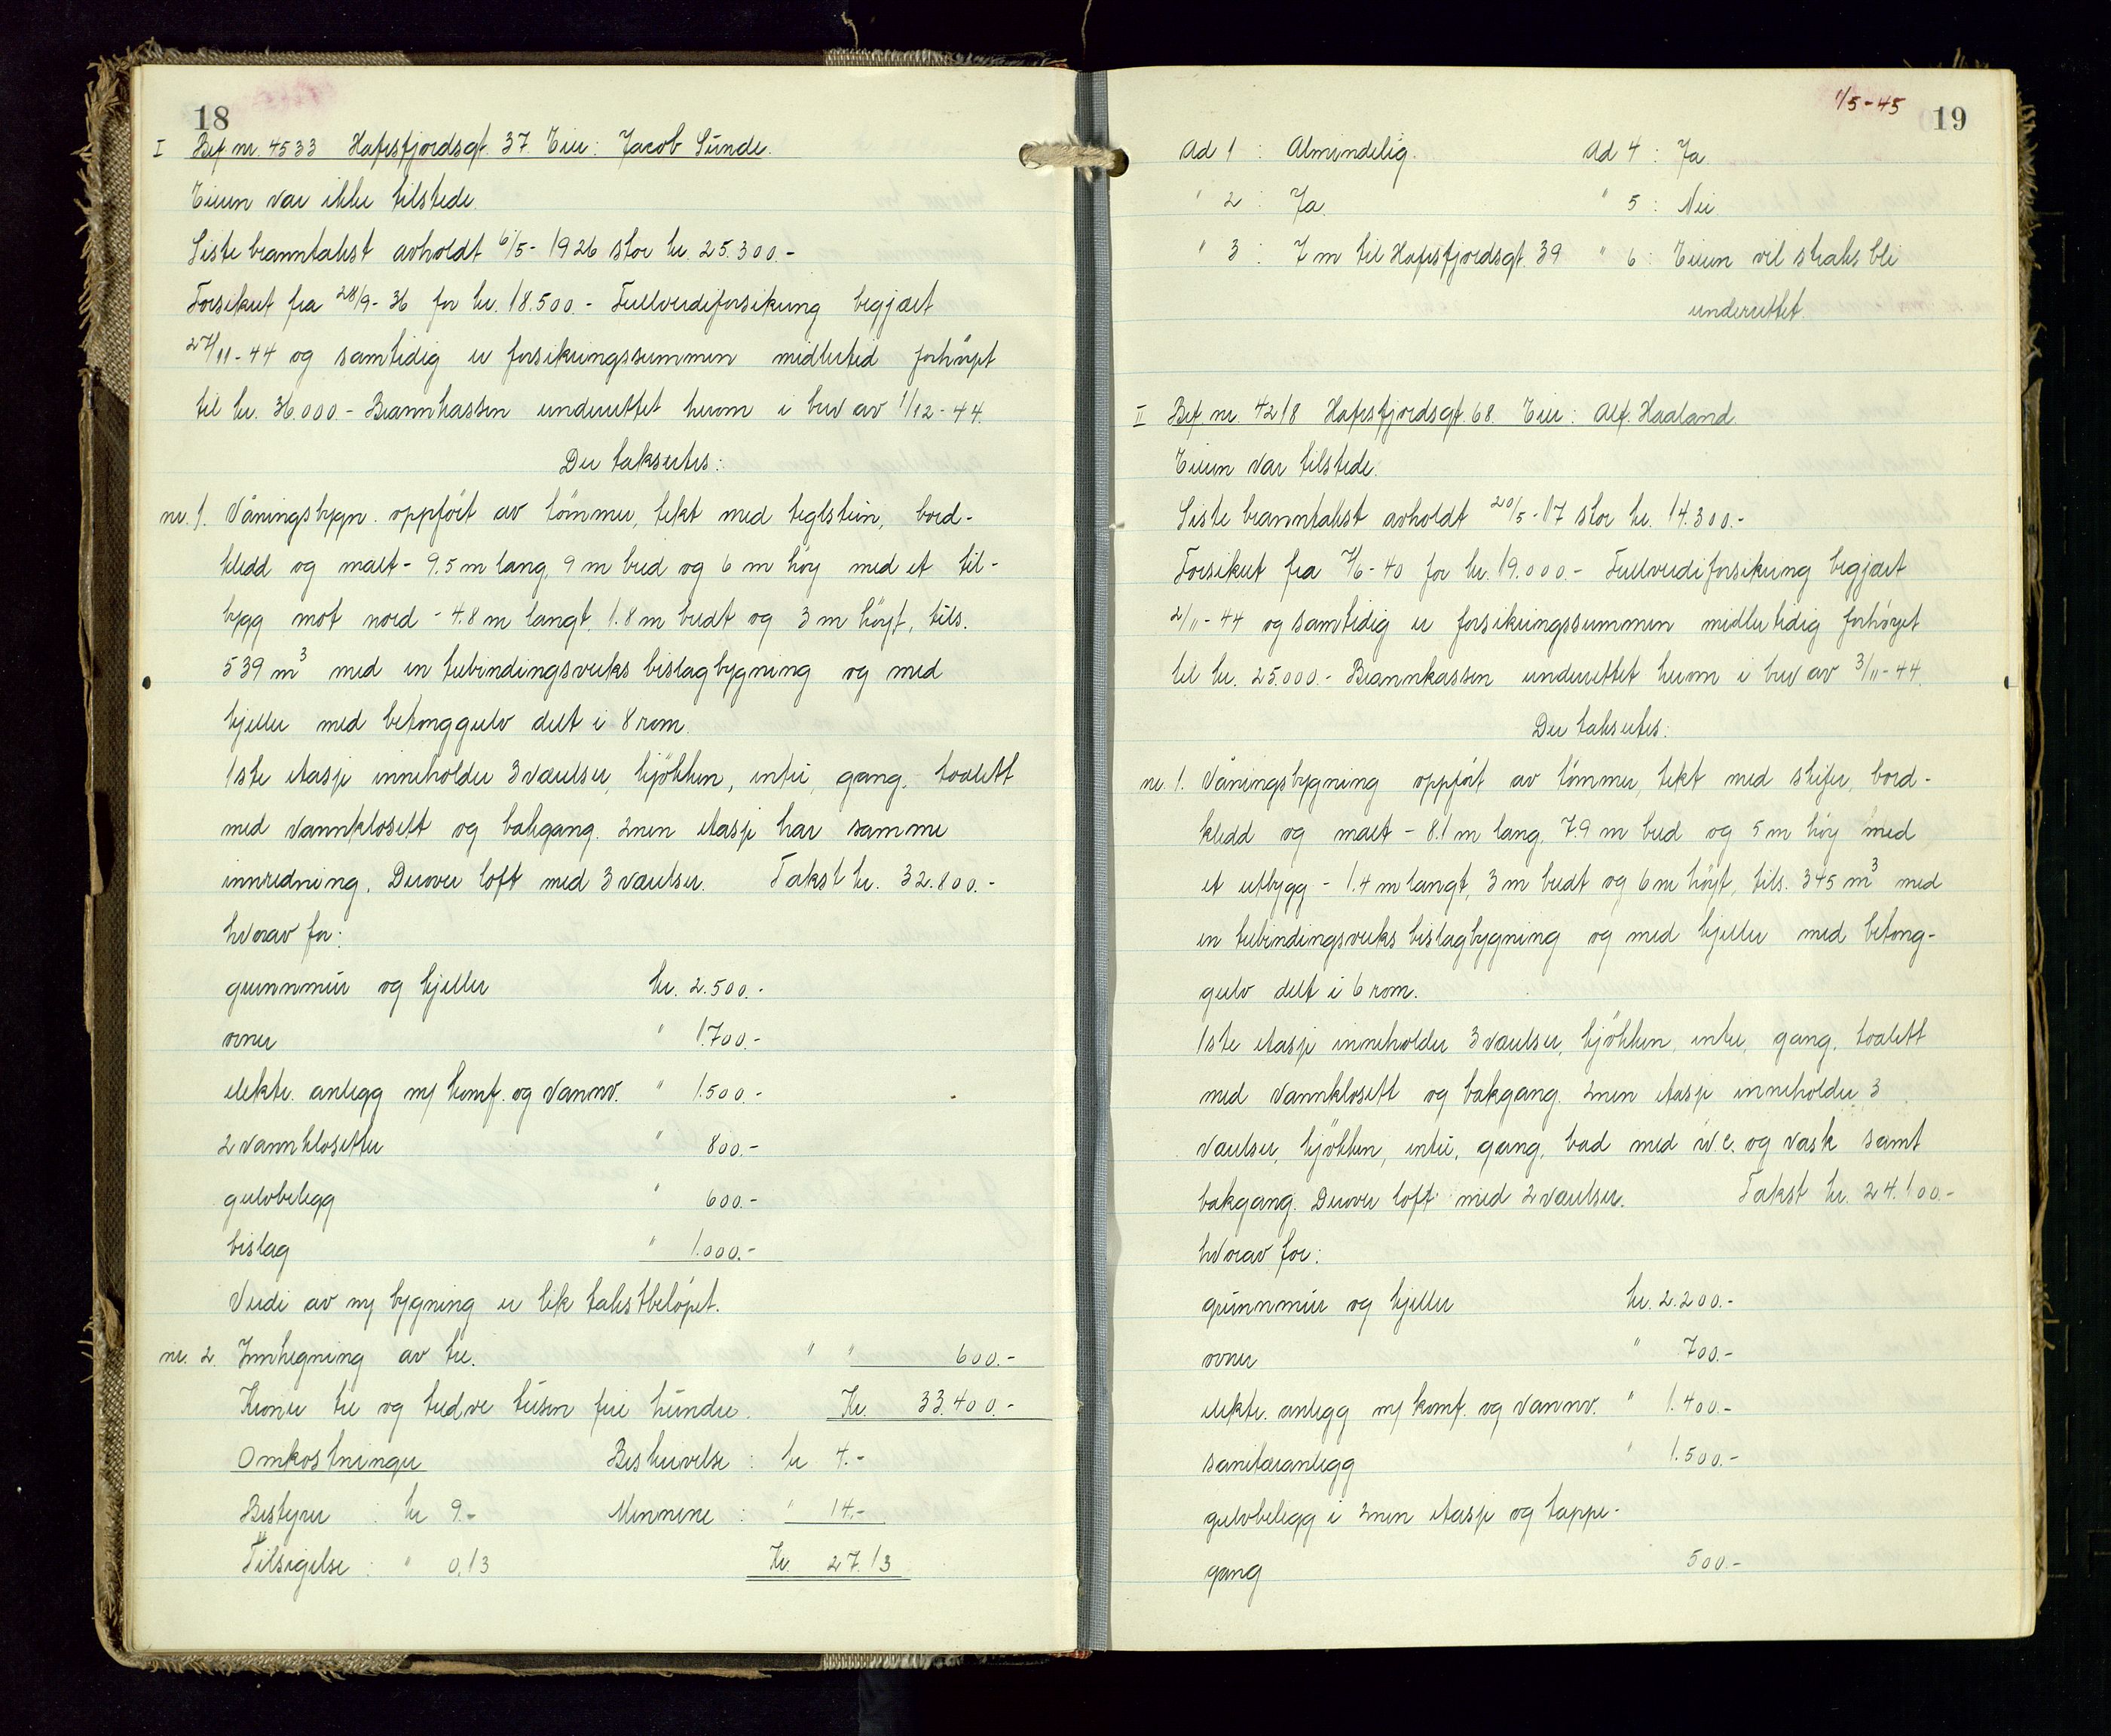 18
I Bef. nr. 4533 Hafrsfjordsgt. 37. Eier: Jacob Sunde.
Eieren var ikke tilstede.
Siste branntakst avholdt 6/5-1926 stor kr. 25.300.-
Forsikret fra 28/9-36 for kr. 18.500.- Fullverdiforsikring begjært
27/11-44 og samtidig er forsikringssummen midlertid forhöyet
til kr. 36.000.- Brannkassen underrettet herom i brev av 1/12-44.
Der takseres:
nr. 1. Våningsbygn. oppfört av tömmer, tekt med teglstein, bord-
kledd og malt - 9.5 m lang, 9 m bred og 6 m höy med et til-
bygg mot nord - 4.8 m langt, 1.8 m bredt og 3 m höyt, tils.
539 m³ med en trebindingsverks bislagbygning og med
kjeller med betonggulv delt i 8 rom.
1ste etasje inneholder 3 værelser, kjökken, entré, gang, toalett
med vannklosett og bakgang. 2nen etasje har samme
innredning. Derover loft med 3 værelser. Takst kr. 32.800.-
hvorav for:
grunnmur og kjeller kr. 2.500.-
ovner " 1.700.-
elektr. anlegg m/ komf. og vannv. " 1.500.-
2 vannklosetter " 800.-
gulvbelegg " 600.-
bislag " 1.000.-
Verdi av ny bygning er lik takstbelöpet.
nr. 2. Innhegning av tre. " " 600.-
Kroner tre og tredve tusen fire hundre. Kr. 33.400.-
Omkostninger Beskrivelse: kr 4.-
Bestyrer: kr 9.- Mennene: " 14.-
Tilsigelse: " 0,13 Kr. 27.13
1/5-45
19
Ad 1: Almindelig. Ad 4: Ja
" 2: Ja. " 5: Nei
" 3: 7 m til Hafrsfjordsgt. 39 " 6: Eieren vil straks bli
underrettet.
II Bef. nr. 4218 Hafrsfjordsgt. 68. Eier: Alf. Haaland.
Eieren var tilstede.
Siste branntakst avholdt 20/5-17 stor kr. 14.300.-
Forsikret fra 7/6-40 for kr. 19.000.- Fullverdiforsikring begjært
2/11-44 og samtidig er forsikringssummen midlertidig forhöyet
til kr. 25.000.- Brannkassen underrettet herom i brev av 3/11-44.
Der takseres:
nr. 1. Våningsbygning oppfört av tömmer, tekt med skifer, bord-
kledd og malt - 8.1 m lang, 7.9 m bred og 5 m höy med
et utbygg - 1.4 m langt, 3 m bredt og 6 m höyt, tils. 345 m³ med
en trebindingsverks bislagbygning og med kjeller med betong-
gulv delt i 6 rom.
1ste etasje inneholder 3 værelser, kjökken, entre, gang, toalett
med vannklosett og bakgang. 2nen etasje inneholder 3
værelser, kjökken, entré, gang, bad med w.c. og vask samt
bakgang. Derover loft med 2 værelser. Takst kr. 24.100.-
hvorav for:
grunnmur og kjeller kr. 2.200.-
ovner " 700.-
elektr. anlegg m/ komf. og vannv. " 1.400.-
sanitæranlegg " 1.500.-
gulvbelegg i 2nen etasje og trappe-
gang 500.-